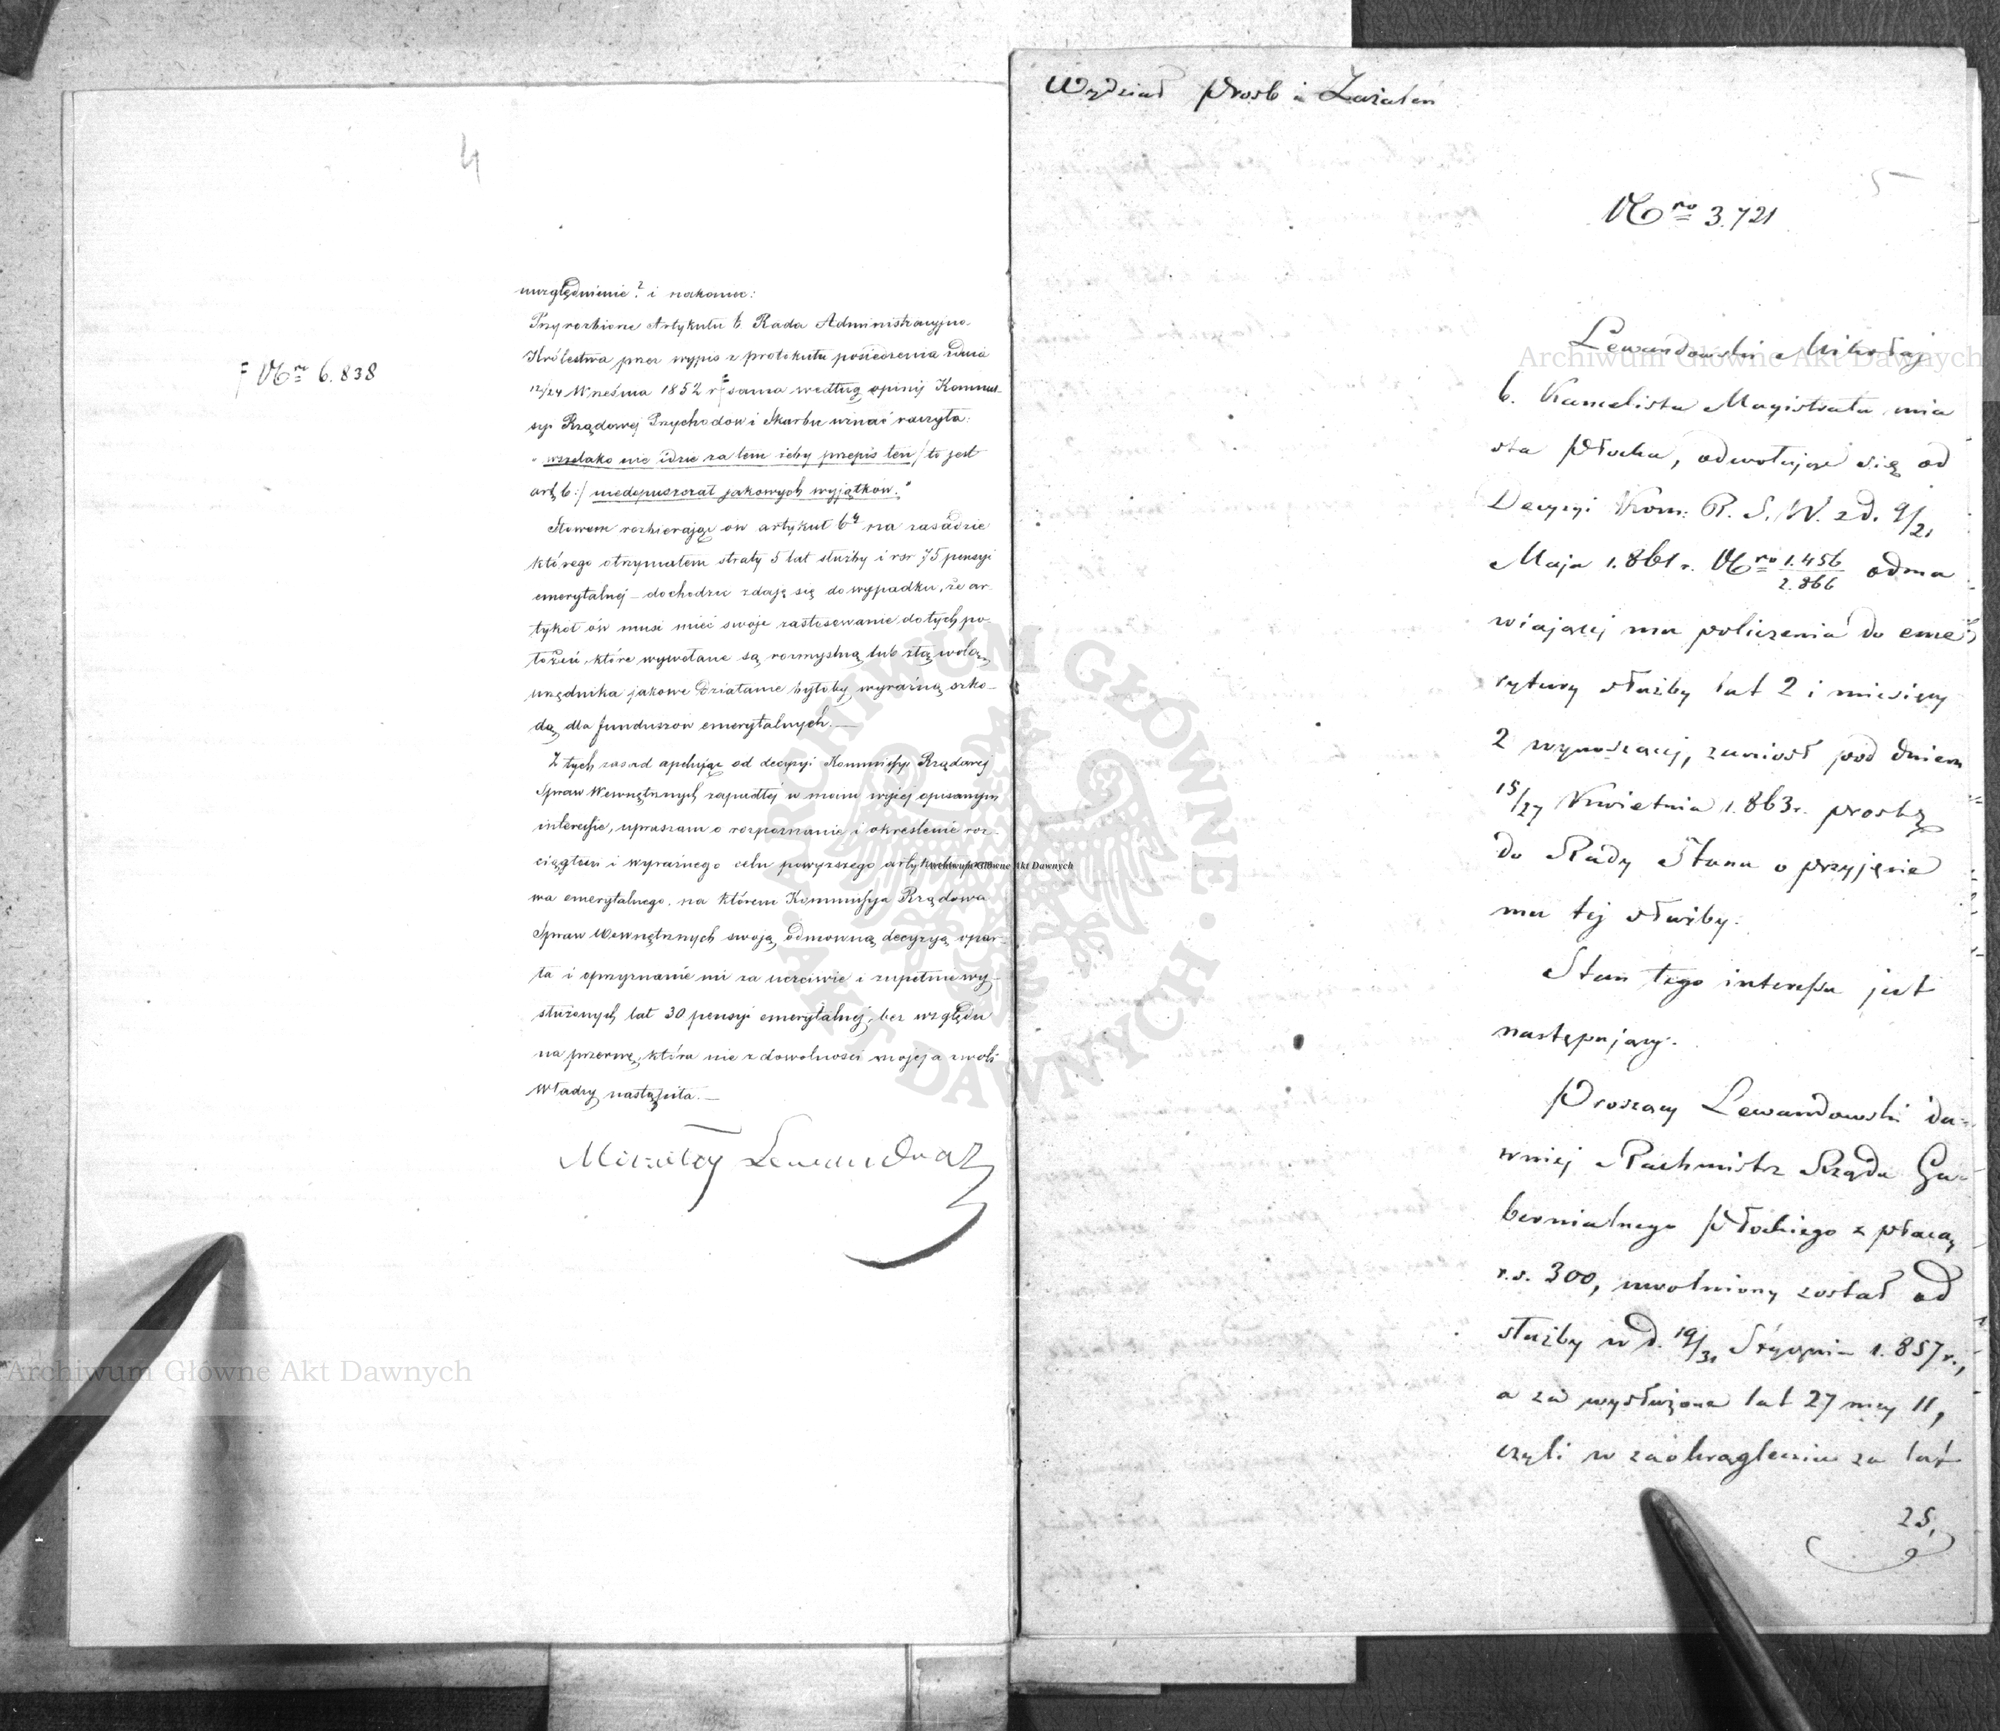 4
uwzględnienie? i nakoniec:
Przyrozbiorze Artykułu 6. Rada Administracyjna
Królestwa przez wypis z protokułu posiedzenia z dnia
12/24 Września 1852 r. sama według opinij Kommis-
syi Rządowej Przychodow i Skarbu uznać raczyła:
„wszelako nie idzie zatem żeby przepis ten / to jest
art. 6:/ niedopuszczał jakowych wyjątków."
F Nro 6.838
Słowem rozbierając ów artykuł 6ty na zasadzie
którego otrzymałem straty 5 lat służby i rsr 75 pensyi
emerytalnej – dochodzić zdaję się do wypadku, że ar-
tykół ów musi mieć swoje zastosowanie do tych po-
łożeń, które wywołane są rozmyślną lub złą wolą
urzędnika jakowe działanie byłoby wyraźną szko-
dą dla funduszów emerytalnych. —
Z tych zasad apelując od decyzyi Kommissyi Rządowej
Spraw Wewnętrznych zapadłej w moim wyżej opisanym
interessie, upraszam o rozpoznanie i określenie roz-
ciągłości i wyraźnego celu powyższego artykułu pra-
wa emerytalnego, na którem Kommissya Rządowa
Spraw Wewnętrznych swoją odmowną decyzyą opar-
ła i o przyznanie mi za uczciwie i zupełnie wy-
służonych lat 30 pensyi emerytalnej, bez względu
na przerwę, która nie z dowolności mojej a z woli
Władzy nastąpiła. —
Mikołaj Lewandowski
Wydział Prosb i Zażaleń
5
Nro 3.721
Lewandowski Mikołaj
b. Kancelista Magistratu mia
sta Płocka, odwołując się od
Decyzyi Kom: R. S. W. z d. 9/21
Maja 1.861 r. Nro 1.456/2.866 odma
wiającej mu policzenia do eme
rytury służby lat 2 i miesięcy
2 wynoszącej, zaniósł pod dniem
15/27 Kwietnia 1.863 r. prosbę
do Rady Stanu o przyjęcie
mu tej służby.
Stan tego interessu jest
następujący.
Proszący Lewandowski da-
wniej Rachmistrz Rządu Gu-
bernialnego Płockiego z płacą
r.s. 300, uwolniony został od
służby w d. 19/31 Stycznia 1.857 r.,
a za wysłużone lat 27 mcy 11,
czyli w zaokrągleniu za lat
25,
Archiwum Główne Akt Dawnych
Archiwum Główne Akt Dawnych
Archiwum Główne Akt Dawnych
ARCHIWUM GŁÓWNE · AKT DAWNYCH ·